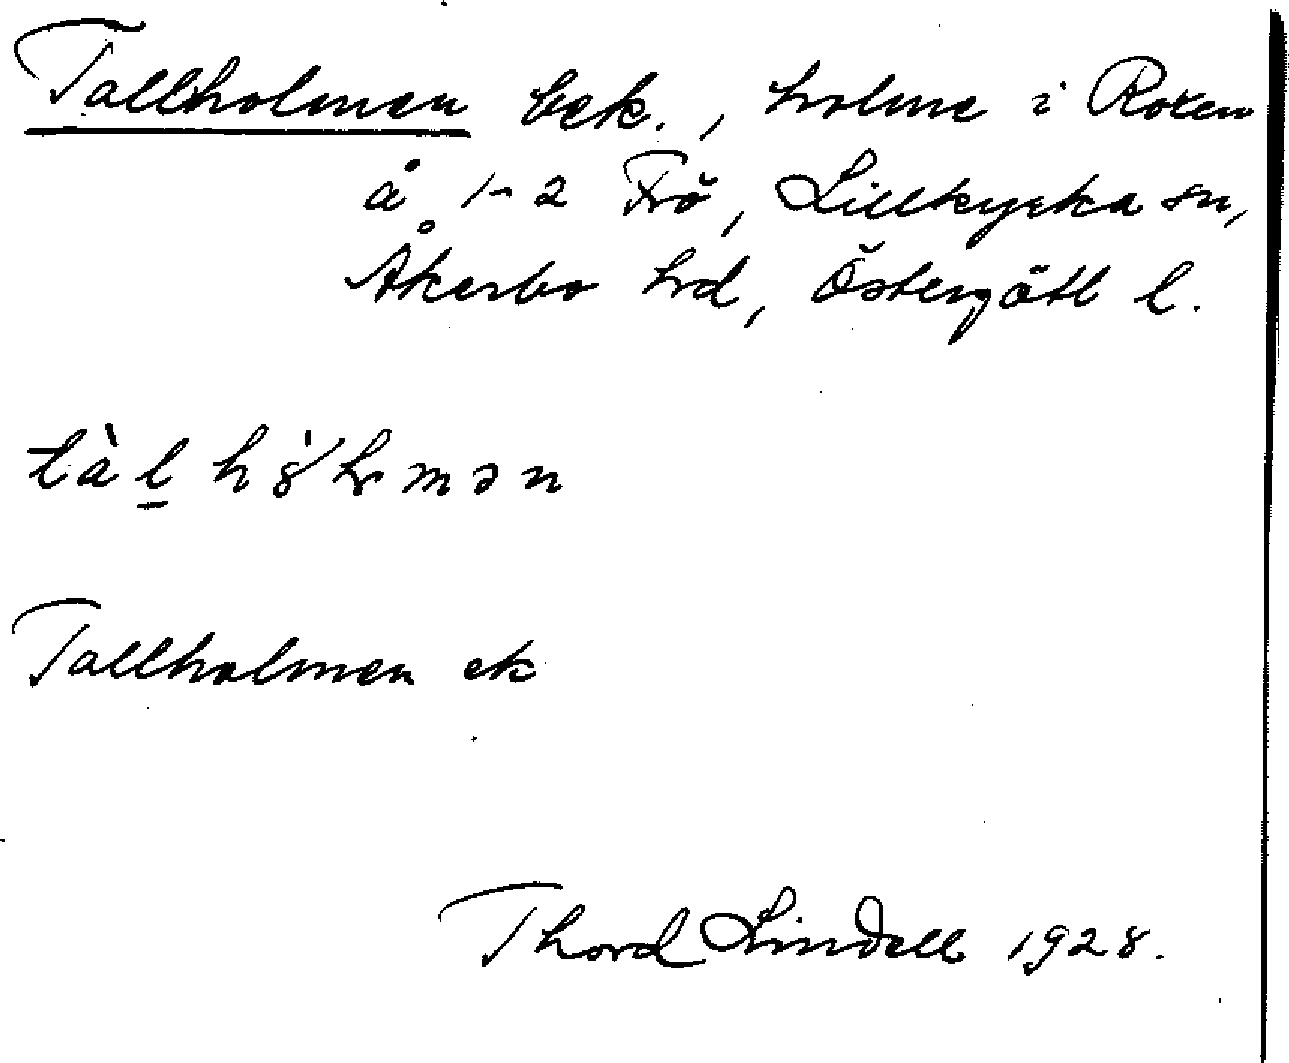 Tallholmen bek., holme i Roxen
å 1-2 Frö, Lillkyrka sn,
Åkerbo hrd, Östergötl l.
Tallholmen ek
Thord Lindell 1928.